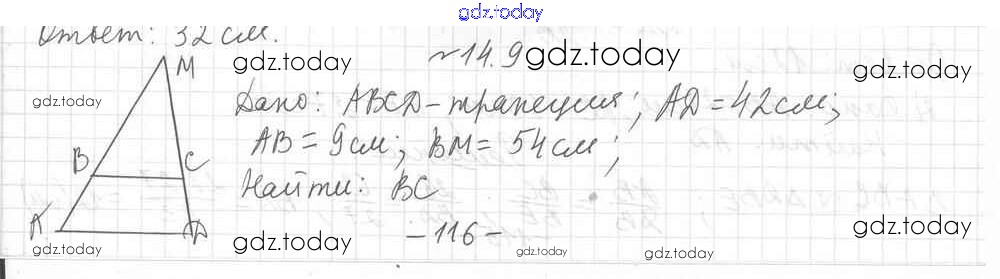 gdz.today
Ответ: 32 см.
№14.9 gdz.today
gdz.today
gdz.today
M
gdz.today
Дано: ABCD - трапеция; AD = 42 см;
AB = 9 см; BM = 54 см;
B
C
Найти: BC
A
D
gdz.today
gdz.today
- 116 -
gdz.today
gdz.today
gdz.today